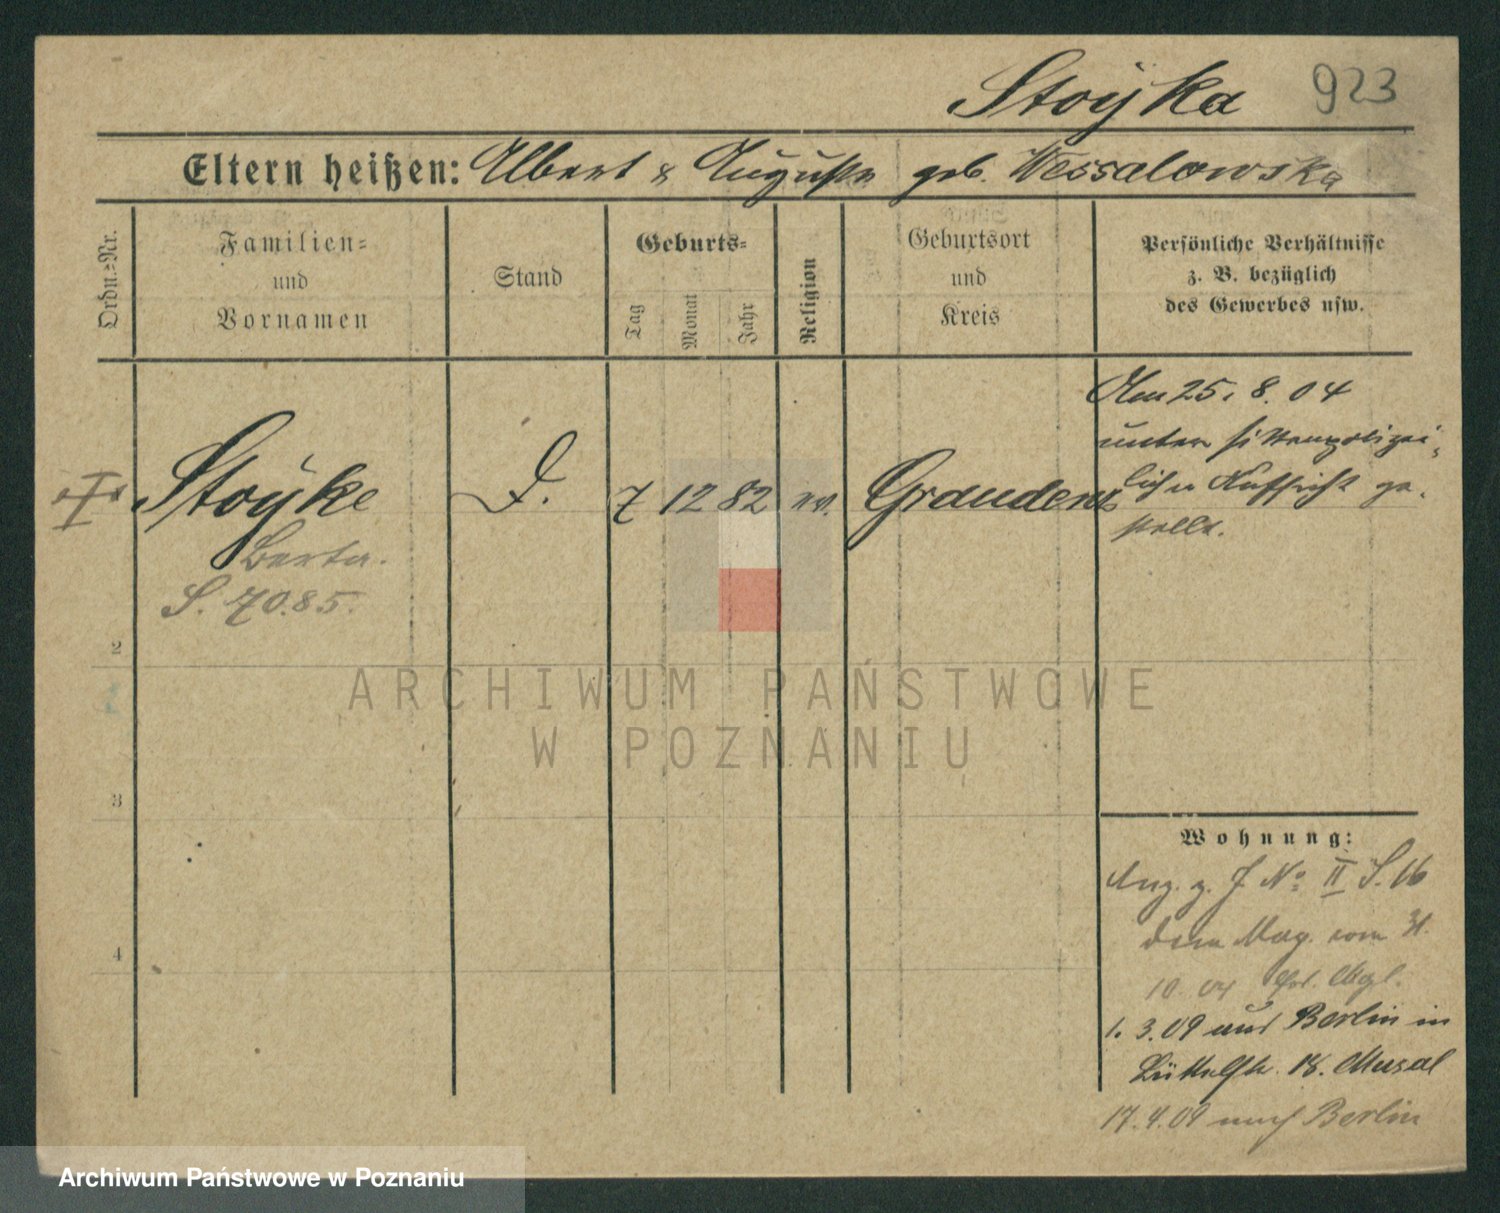 Stoÿka 923
Eltern heißen: Albert & Auguste geb. Wessalowska
Ordn.=Nr.
Familien=
und
Vornamen
Stand
Geburts=
Tag
Monat
Jahr
Religion
Geburtsort
und
Kreis
Persönliche Verhältnisse
z. B. bezüglich
des Gewerbes usw.
Stoÿke
Berta.
S. 7085.
D.
7 12 82
ev.
Graudenz
Am 25. 8. 04
unter sittenpolizei-
licher Aufsicht ge-
stellt.
2
3
4
Wohnung:
Anz. z. J. No II S. 16
dem Mag. vom 31.
10. 04
1. 3. 09 aus Berlin in
18. Musal
17. 4. 09 nach Berlin
ARCHIWUM PAŃSTWOWE
W POZNANIU
Archiwum Państwowe w Poznaniu